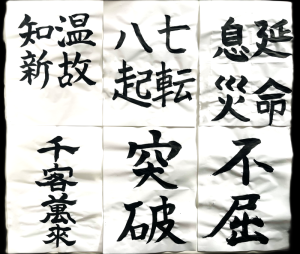 温故
知新
七転
八起
延命
息災
千客萬來
突破
不屈